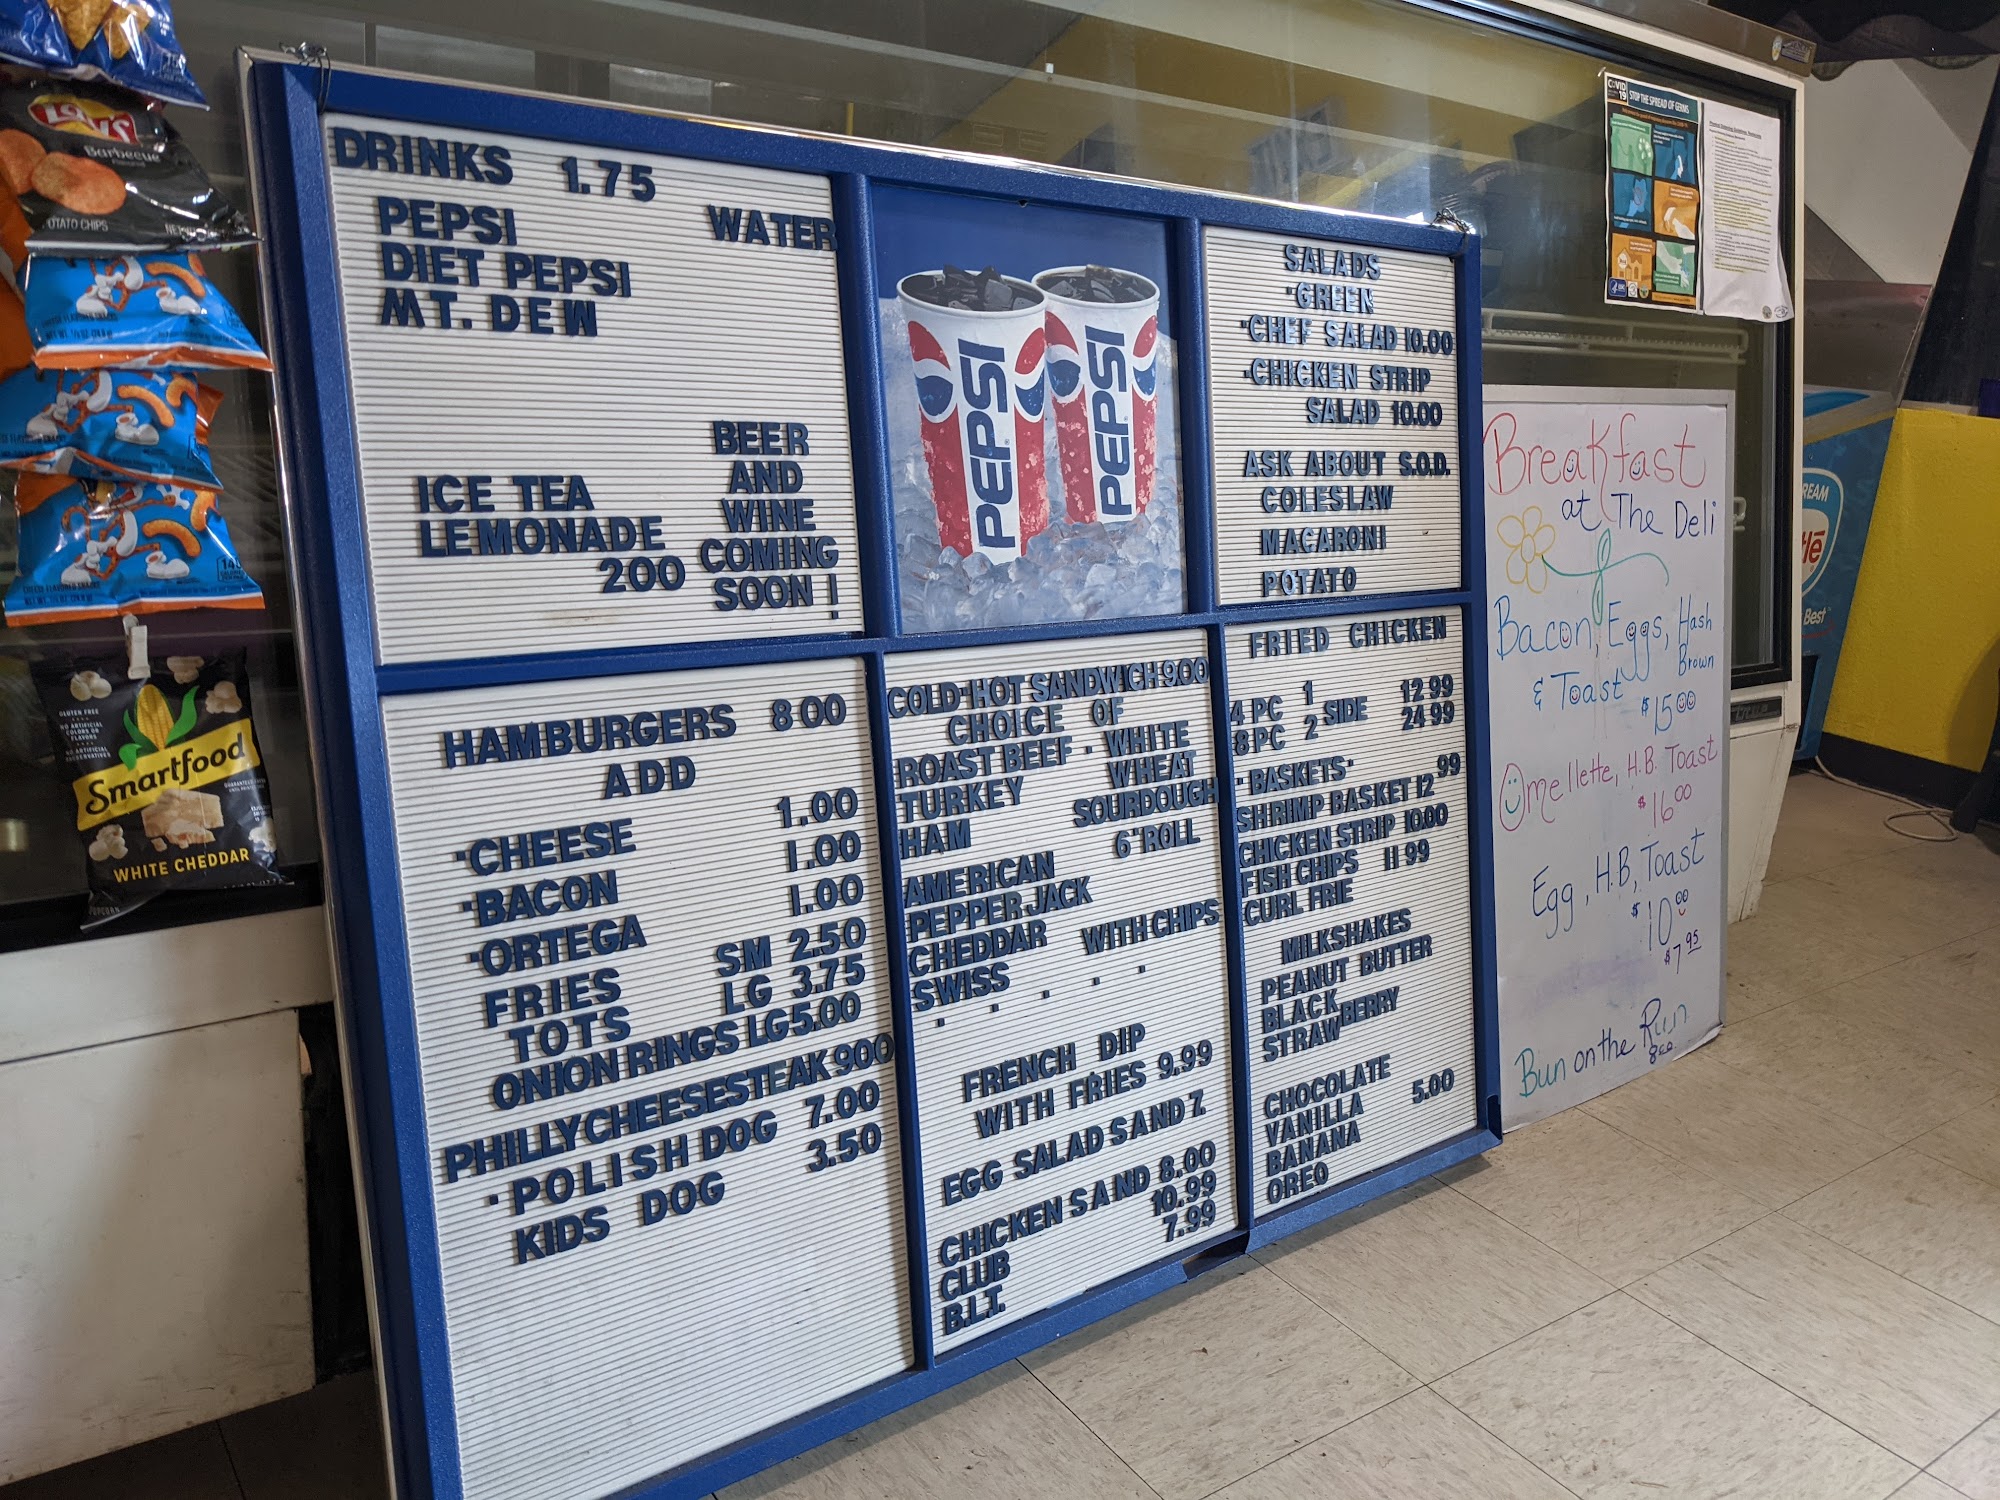 DRINKS 1.75
PEPSI WATER
DIET PEPSI
MT. DEW
BEER
AND
WINE
COMING
SOON !
ICE TEA
LEMONADE
200
PEPSI
PEPSI
SALADS
·GREEN
·CHEF SALAD 10.00
·CHICKEN STRIP
SALAD 10.00
ASK ABOUT S.O.D.
COLESLAW
MACARONI
POTATO
HAMBURGERS 800
ADD
·CHEESE 1.00
·BACON 1.00
·ORTEGA 1.00
FRIES SM 2.50
TOTS LG 3.75
ONION RINGS LG 5.00
PHILLYCHEESESTEAK 900
·POLISH DOG 7.00
KIDS DOG 3.50
COLD·HOT SANDWICH 9.00
CHOICE OF
ROAST BEEF · WHITE
TURKEY WHEAT
HAM SOURDOUGH
6" ROLL
AMERICAN
PEPPER JACK
CHEDDAR WITH CHIPS
SWISS
FRENCH DIP
WITH FRIES 9.99
EGG SALAD SAND 7.
CHICKEN SAND 8.00
CLUB 10.99
B.L.T. 7.99
FRIED CHICKEN
4 PC 1 SIDE 12 99
8 PC 2 24 99
·BASKETS·
SHRIMP BASKET 12 99
CHICKEN STRIP 10.00
FISH CHIPS 11 99
CURL FRIE
MILKSHAKES
PEANUT BUTTER
BLACK
STRAWBERRY
CHOCOLATE
VANILLA 5.00
BANANA
OREO
Breakfast
at The Deli
Bacon, Eggs, Hash
Brown
& Toast $15.00
Omellette, H.B. Toast
$16.00
Egg, H.B, Toast
$10.00
$7.95
Bun on the Run
Lay's
Barbecue
POTATO CHIPS
GLUTEN FREE
Smartfood
WHITE CHEDDAR
POPCORN
COVID
19
STOP THE SPREAD OF GERMS
Best